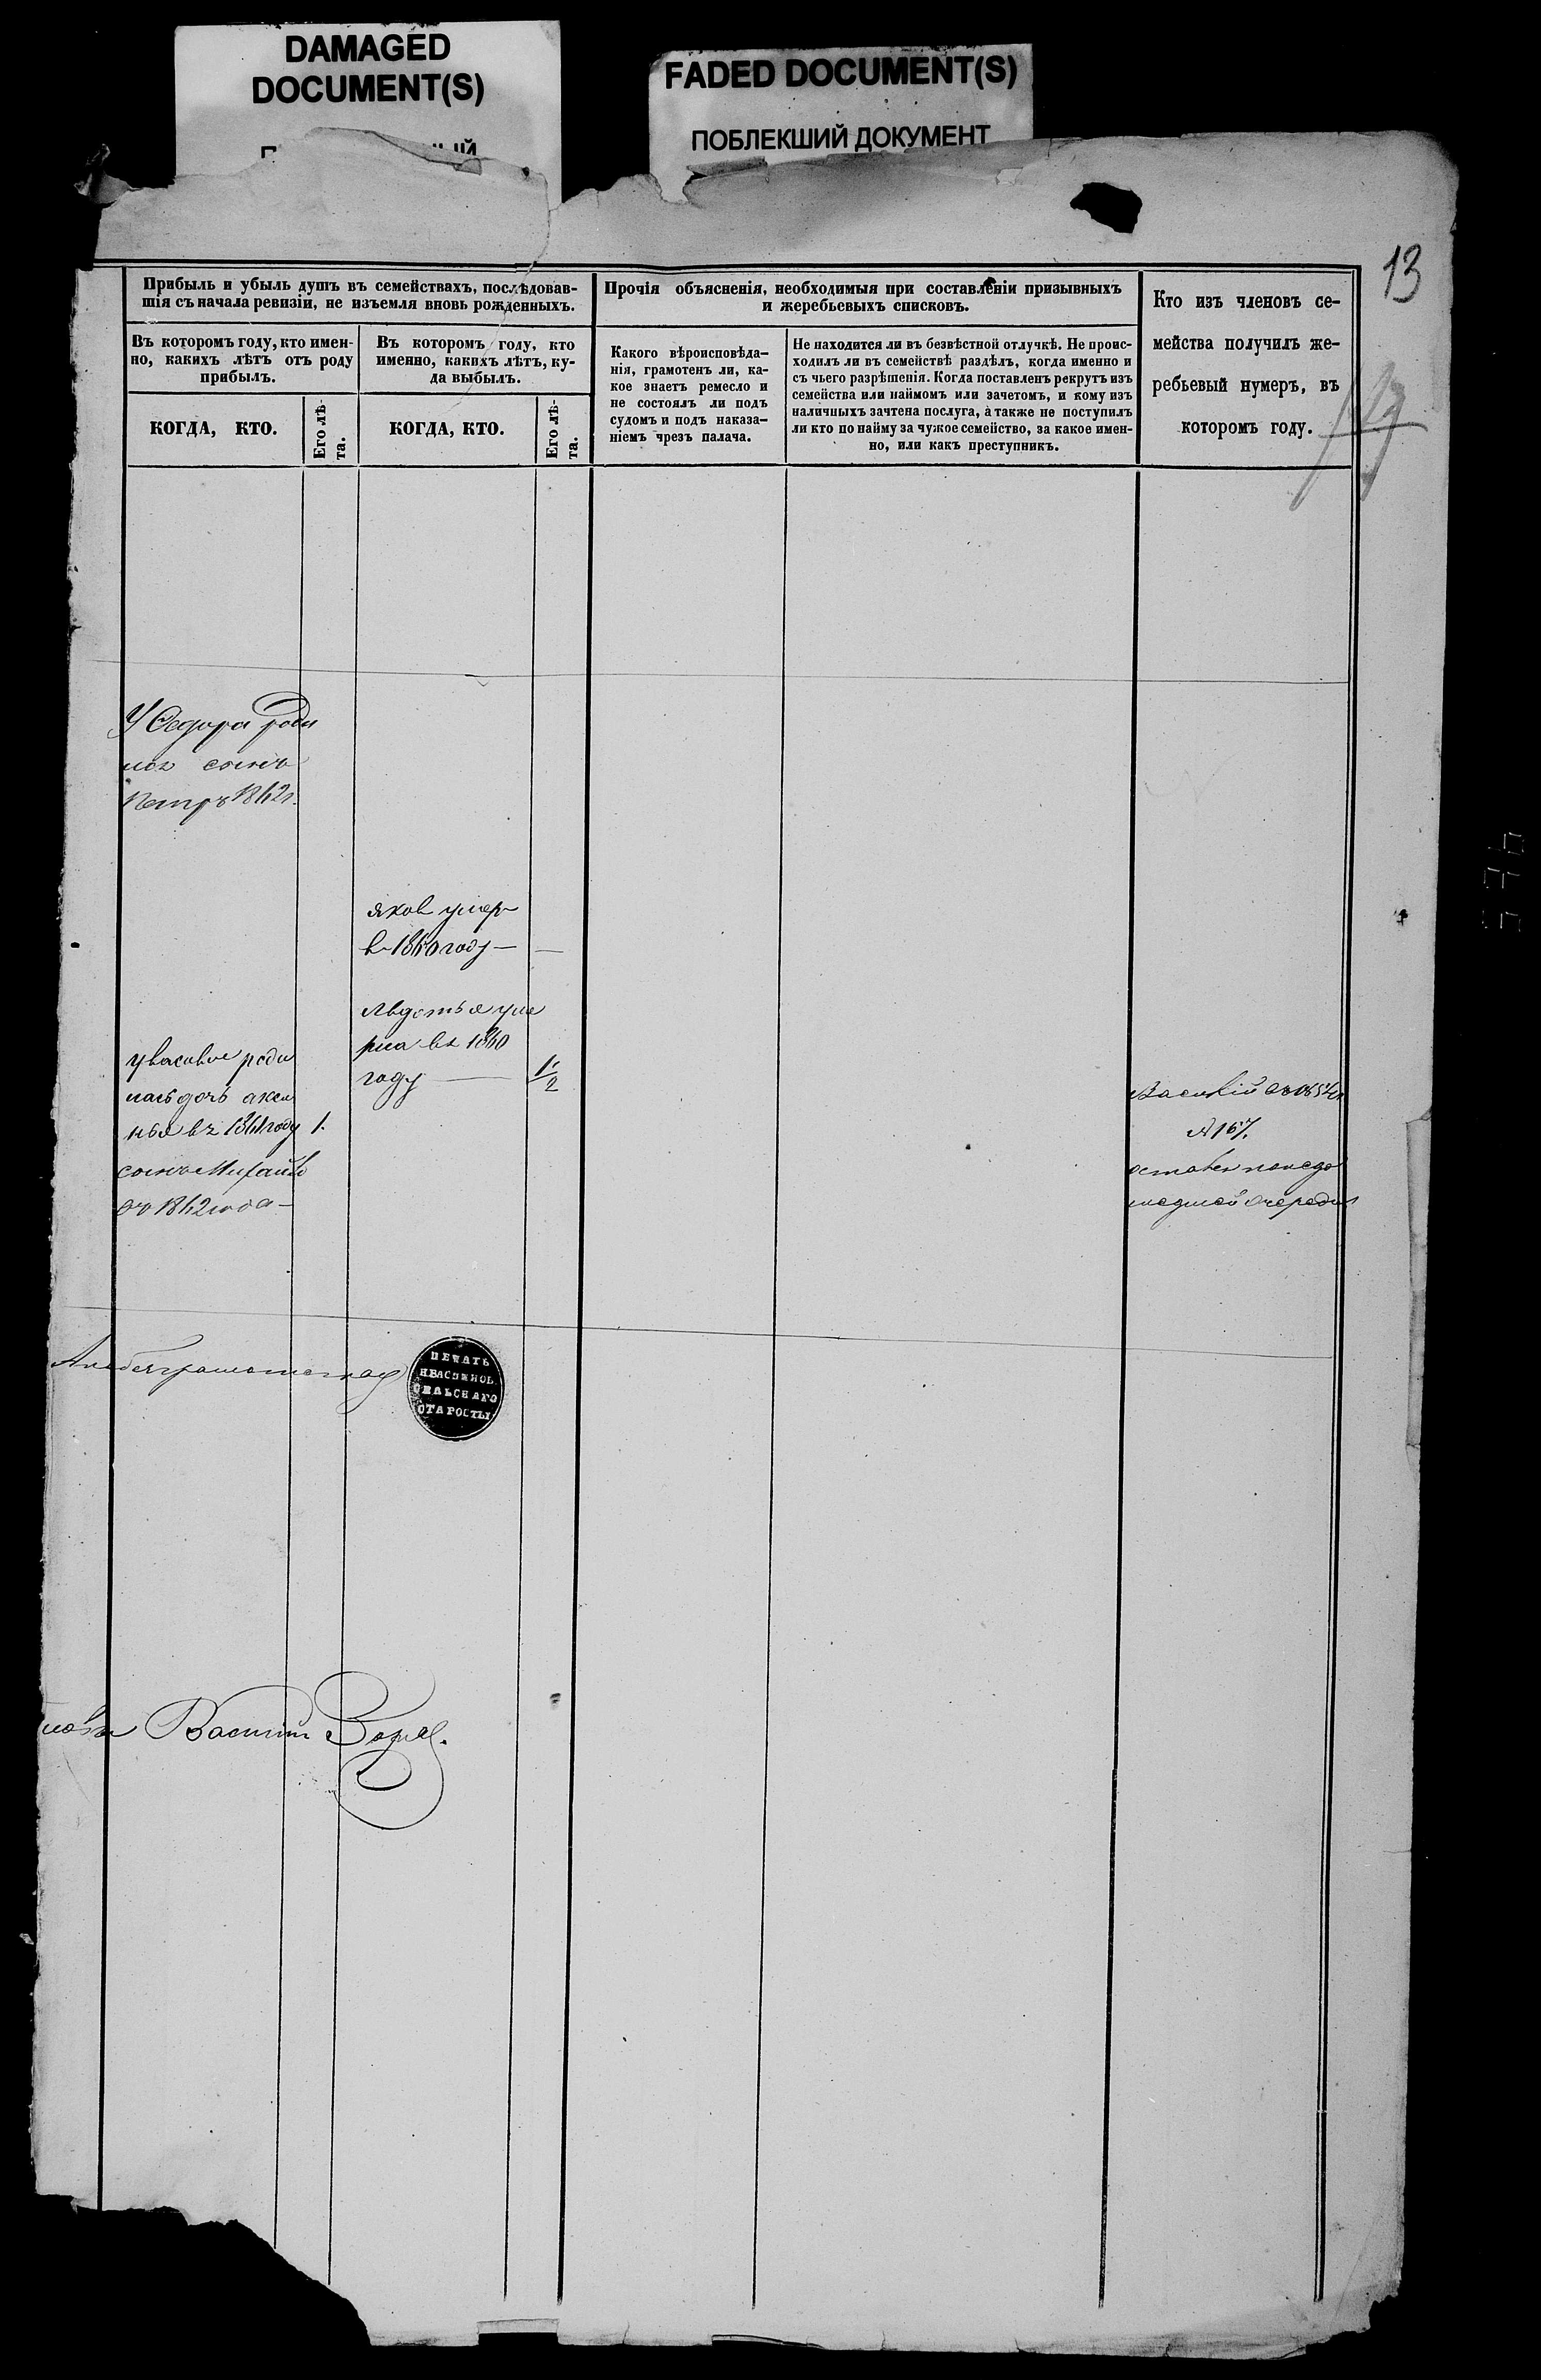 DAMAGED
DOCUMENT(S)
FADED DOCUMENT(S)
ПОБЛЕКШИЙ ДОКУМЕНТ
13
Прибыль и убыль душъ въ семействахъ, послѣдовав-
шія съ начала ревизіи, не изъемля вновь рожденныхъ.
Въ которомъ году, кто имен-
но, какихъ лѣтъ отъ роду
прибылъ.
КОГДА, КТО.
Его лѣ-
та.
Въ которомъ году, кто
именно, какихъ лѣтъ, ку-
да выбылъ.
КОГДА, КТО.
Его лѣ-
та.
Прочія объясненія, необходимыя при составленіи призывныхъ
и жеребьевыхъ списковъ.
Какого вѣроисповѣда-
нія, грамотенъ ли, ка-
кое знаетъ ремесло и
не состоялъ ли подъ
судомъ и подъ наказа-
ніемъ чрезъ палача.
Не находится ли въ безвѣстной отлучкѣ. Не проис-
ходилъ ли въ семействѣ раздѣлъ, когда именно и
съ чьего разрѣшенія. Когда поставленъ рекрутъ изъ
семейства или наймомъ или зачетомъ, и кому изъ
наличныхъ зачтена послуга, а также не поступилъ
ли кто по найму за чужое семейство, за какое имен-
но, или какъ преступникъ.
Кто изъ членовъ се-
мейства получилъ же-
ребьевый нумеръ, въ
которомъ году.
У Федора роди
лся сынъ
Петръ 1862г.
яков умер
в 1860 году —
Авдотья уме
рла въ 1860
году — 1/2
у василь
роди
лась дочь акси
нья въ 1861 году 1.
сынъ Михаилъ
1862 года —
Василій
№ 167.
оставлен
очереди
ПЕЧАТЬ
СЕЛЬСКАГО
СТАРОСТЫ
Василий